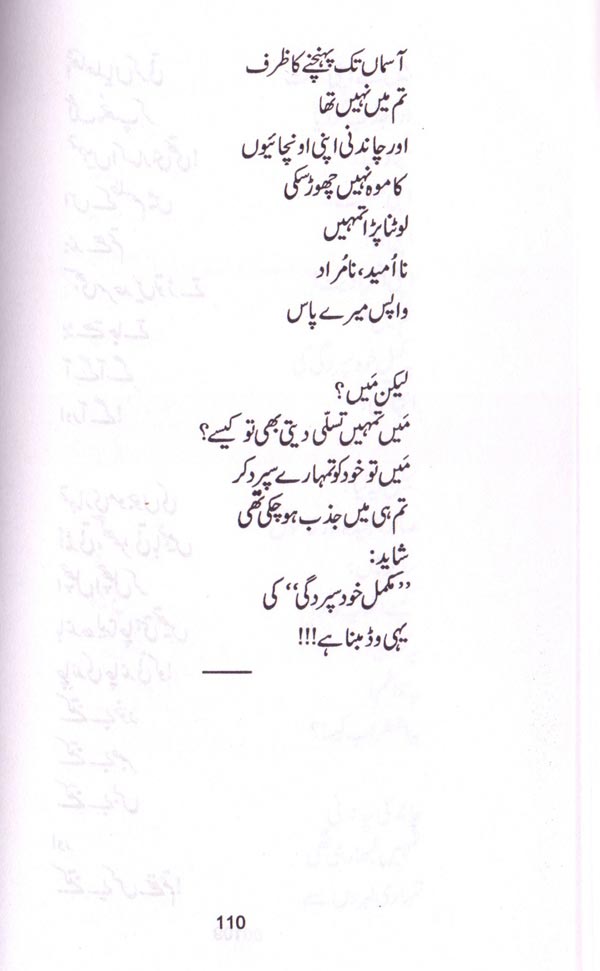 آسماں تک پہنچنے کا ظرف
تم میں نہیں تھا
اور چاندنی اپنی اونچائیوں
کا موہ نہیں چھوڑ سکی
لوٹنا پڑا تمہیں
نا اُمید، نامُراد
واپس میرے پاس
لیکن مَیں؟
مَیں تمہیں تسلّی دیتی بھی تو کیسے؟
مَیں تو خود کو تمہارے سپرد کر
تم ہی میں جذب ہو چکی تھی
شاید:
”مکمل خود سپردگی“ کی
یہی وڈمبنا ہے!!!
110